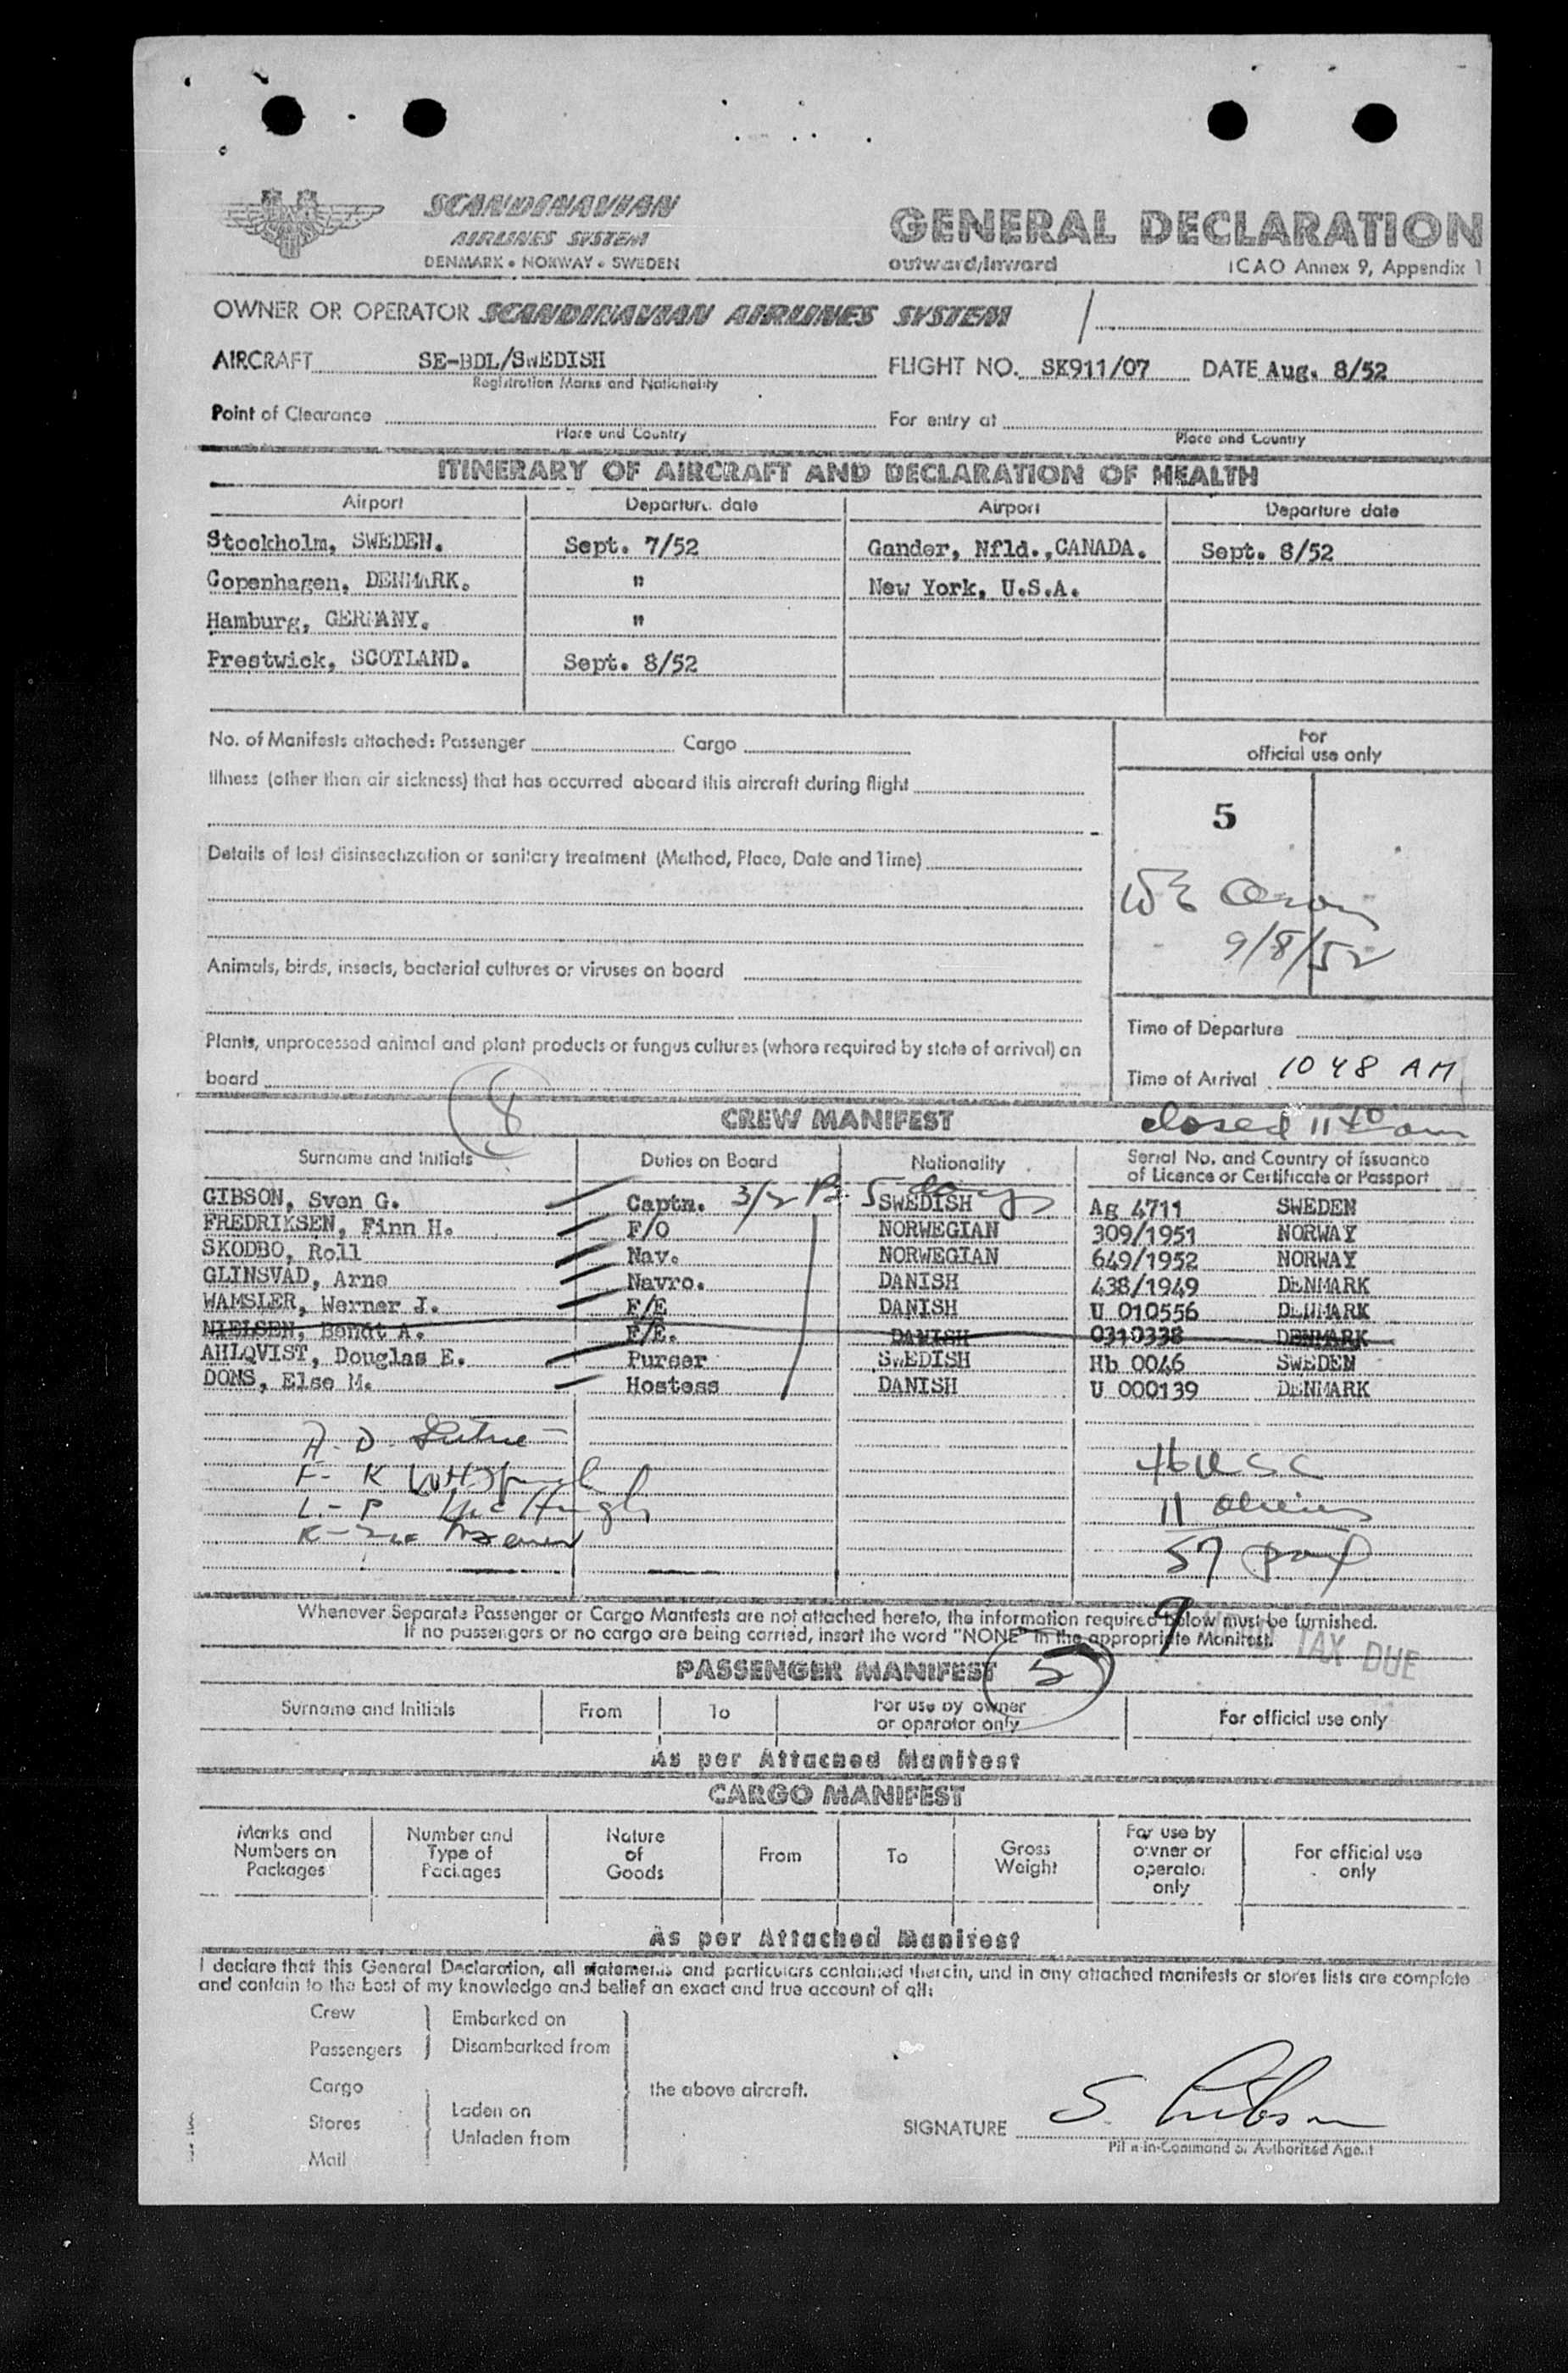 SCANDINAVIAN
AIRLINES SYSTEM
DENMARK • NORWAY • SWEDEN
GENERAL DECLARATION
outward/inward
ICAO Annex 9, Appendix 1
OWNER OR OPERATOR SCANDINAVIAN AIRLINES SYSTEM
AIRCRAFT SE-BDL/SWEDISH FLIGHT NO. SK911/07 DATE Aug. 8/52
Registration Marks and Nationality
Point of Clearance For entry at
Place and Country Place and Country
ITINERARY OF AIRCRAFT AND DECLARATION OF HEALTH
Airport Departure date Airport Departure date
Stockholm, SWEDEN. Sept. 7/52 Gander, Nfld.,CANADA. Sept. 8/52
Copenhagen, DENMARK. " New York, U.S.A.
Hamburg, GERMANY. "
Prestwick, SCOTLAND. Sept. 8/52
No. of Manifests attached: Passenger Cargo
For
official use only
Illness (other than air sickness) that has occurred aboard this aircraft during flight
5
Details of last disinsectization or sanitary treatment (Method, Place, Date and Time)
9/8/52
Animals, birds, insects, bacterial cultures or viruses on board
Time of Departure
Plants, unprocessed animal and plant products or fungus cultures (where required by state of arrival) on
board
Time of Arrival 1048 AM
8
CREW MANIFEST
closed 1140 am
Surname and Initials Duties on Board Nationality Serial No. and Country of issuance
of Licence or Certificate or Passport
GIBSON, Sven G. Captn. SWEDISH Ag 4711 SWEDEN
FREDRIKSEN, Finn H. F/O NORWEGIAN 309/1951 NORWAY
SKODBO, Rolf Nav. NORWEGIAN 649/1952 NORWAY
GLINSVAD, Arne Navro. DANISH 438/1949 DENMARK
WAMSLER, Werner J. F/E DANISH U 010556 DENMARK
NIELSEN, Bendt A. F/E. DANISH 0310338 DENMARK
AHLQVIST, Douglas E. Purser SWEDISH Hb 0046 SWEDEN
DONS, Else M. Hostess DANISH U 000139 DENMARK
46 USC
11 aliens
57 pax
9
Whenever Separate Passenger or Cargo Manifests are not attached hereto, the information required below must be furnished.
If no passengers or no cargo are being carried, insert the word "NONE" in the appropriate Manifest.
TAX DUE
PASSENGER MANIFEST
5
Surname and Initials From To For use by owner
or operator only For official use only
As per Attached Manifest
CARGO MANIFEST
Marks and
Numbers on
Packages
Number and
Type of
Packages
Nature
of
Goods
From
To
Gross
Weight
For use by
owner or
operator
only
For official use
only
As per Attached Manifest
I declare that this General Declaration, all statements and particulars contained therein, and in any attached manifests or stores lists are complete
and contain to the best of my knowledge and belief an exact and true account of all:
Crew Embarked on
Passengers Disembarked from
Cargo the above aircraft.
Stores Laden on
Unladen from
Mail
SIGNATURE S. Gibson
Pilot-in-Command or Authorized Agent